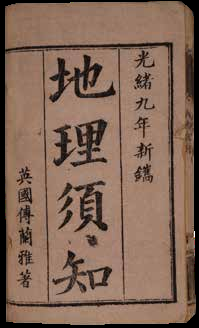 光緒九年新鐫
地理須知
英國傅蘭雅著